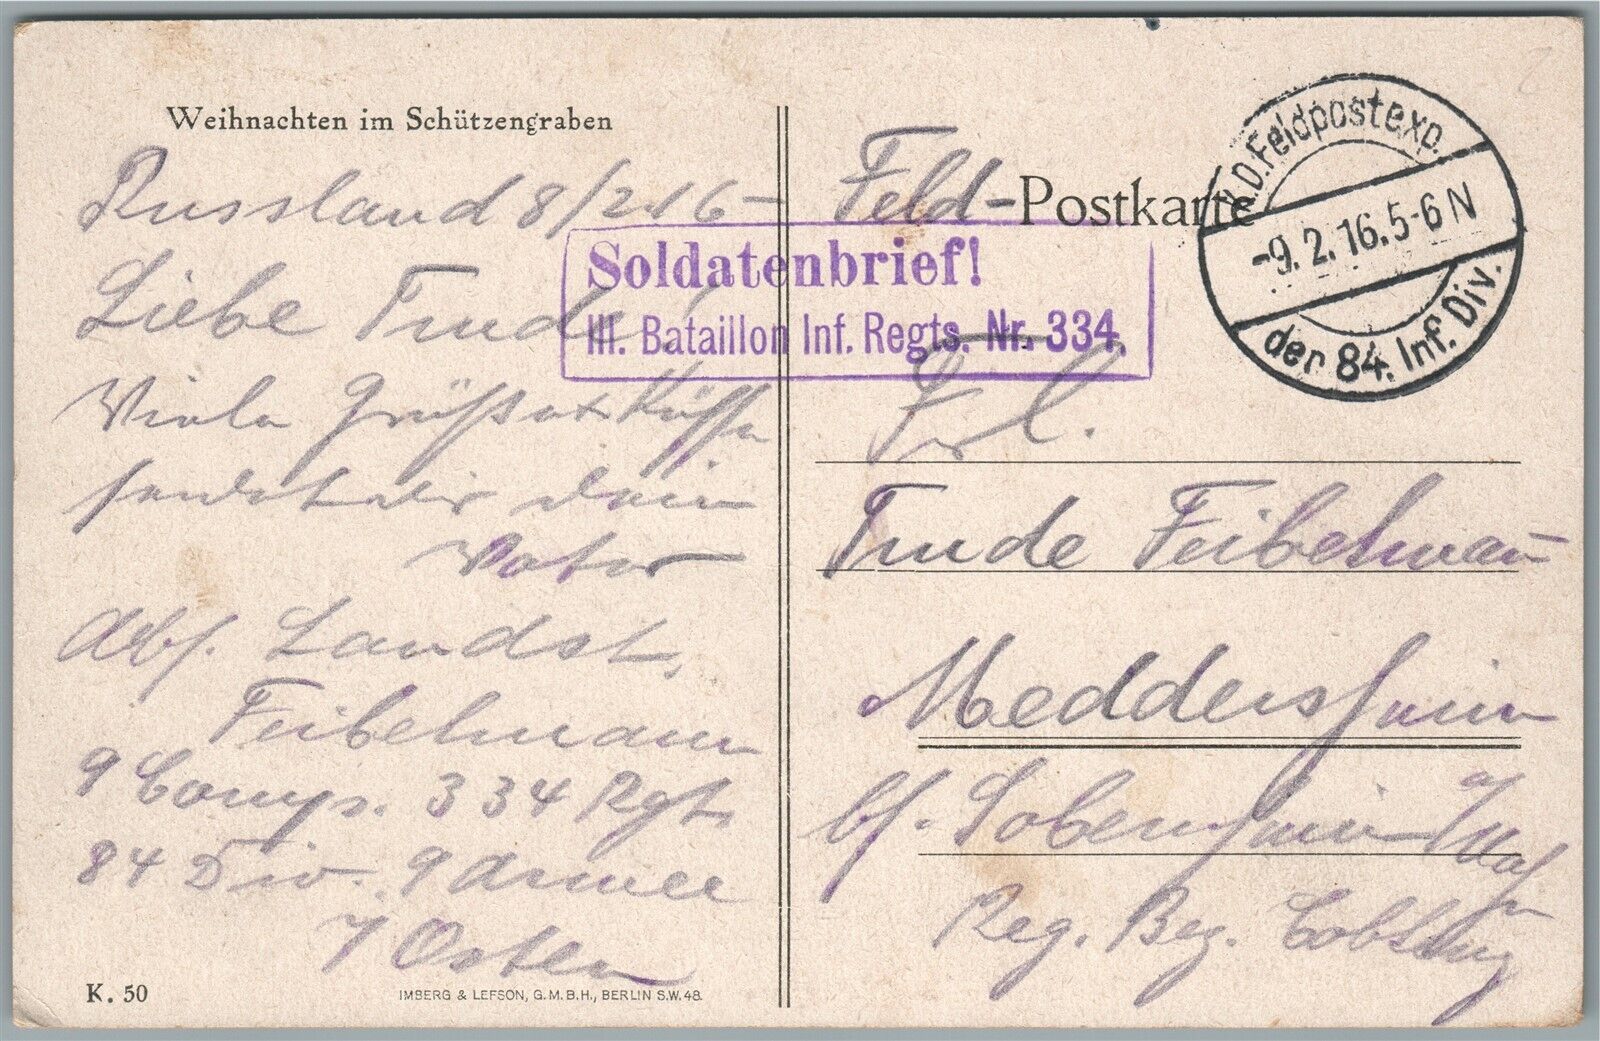 Weihnachten im Schützengraben
Russland 8/2.16 -
Liebe Trude!
Viele Grüße u Küsse
sendet dir dein
Vater
Abs. Landst.
Feibelmann
9 Comp. 334 Rgt.
84 Div. 9 Armee
i/ Osten
K. 50
IMBERG & LEFSON, G.M.B.H., BERLIN S.W. 48.
Feld-Postkarte
Soldatenbrief!
III. Bataillon Inf. Regts. Nr. 334.
K.D. Feldpostexp.
-9.2.16.5-6N
der 84. Inf. Div.
Frl.
Trude Feibelmann
Meddersheim
bei Sobernheim a/Nahe
Reg. Bez. Coblenz